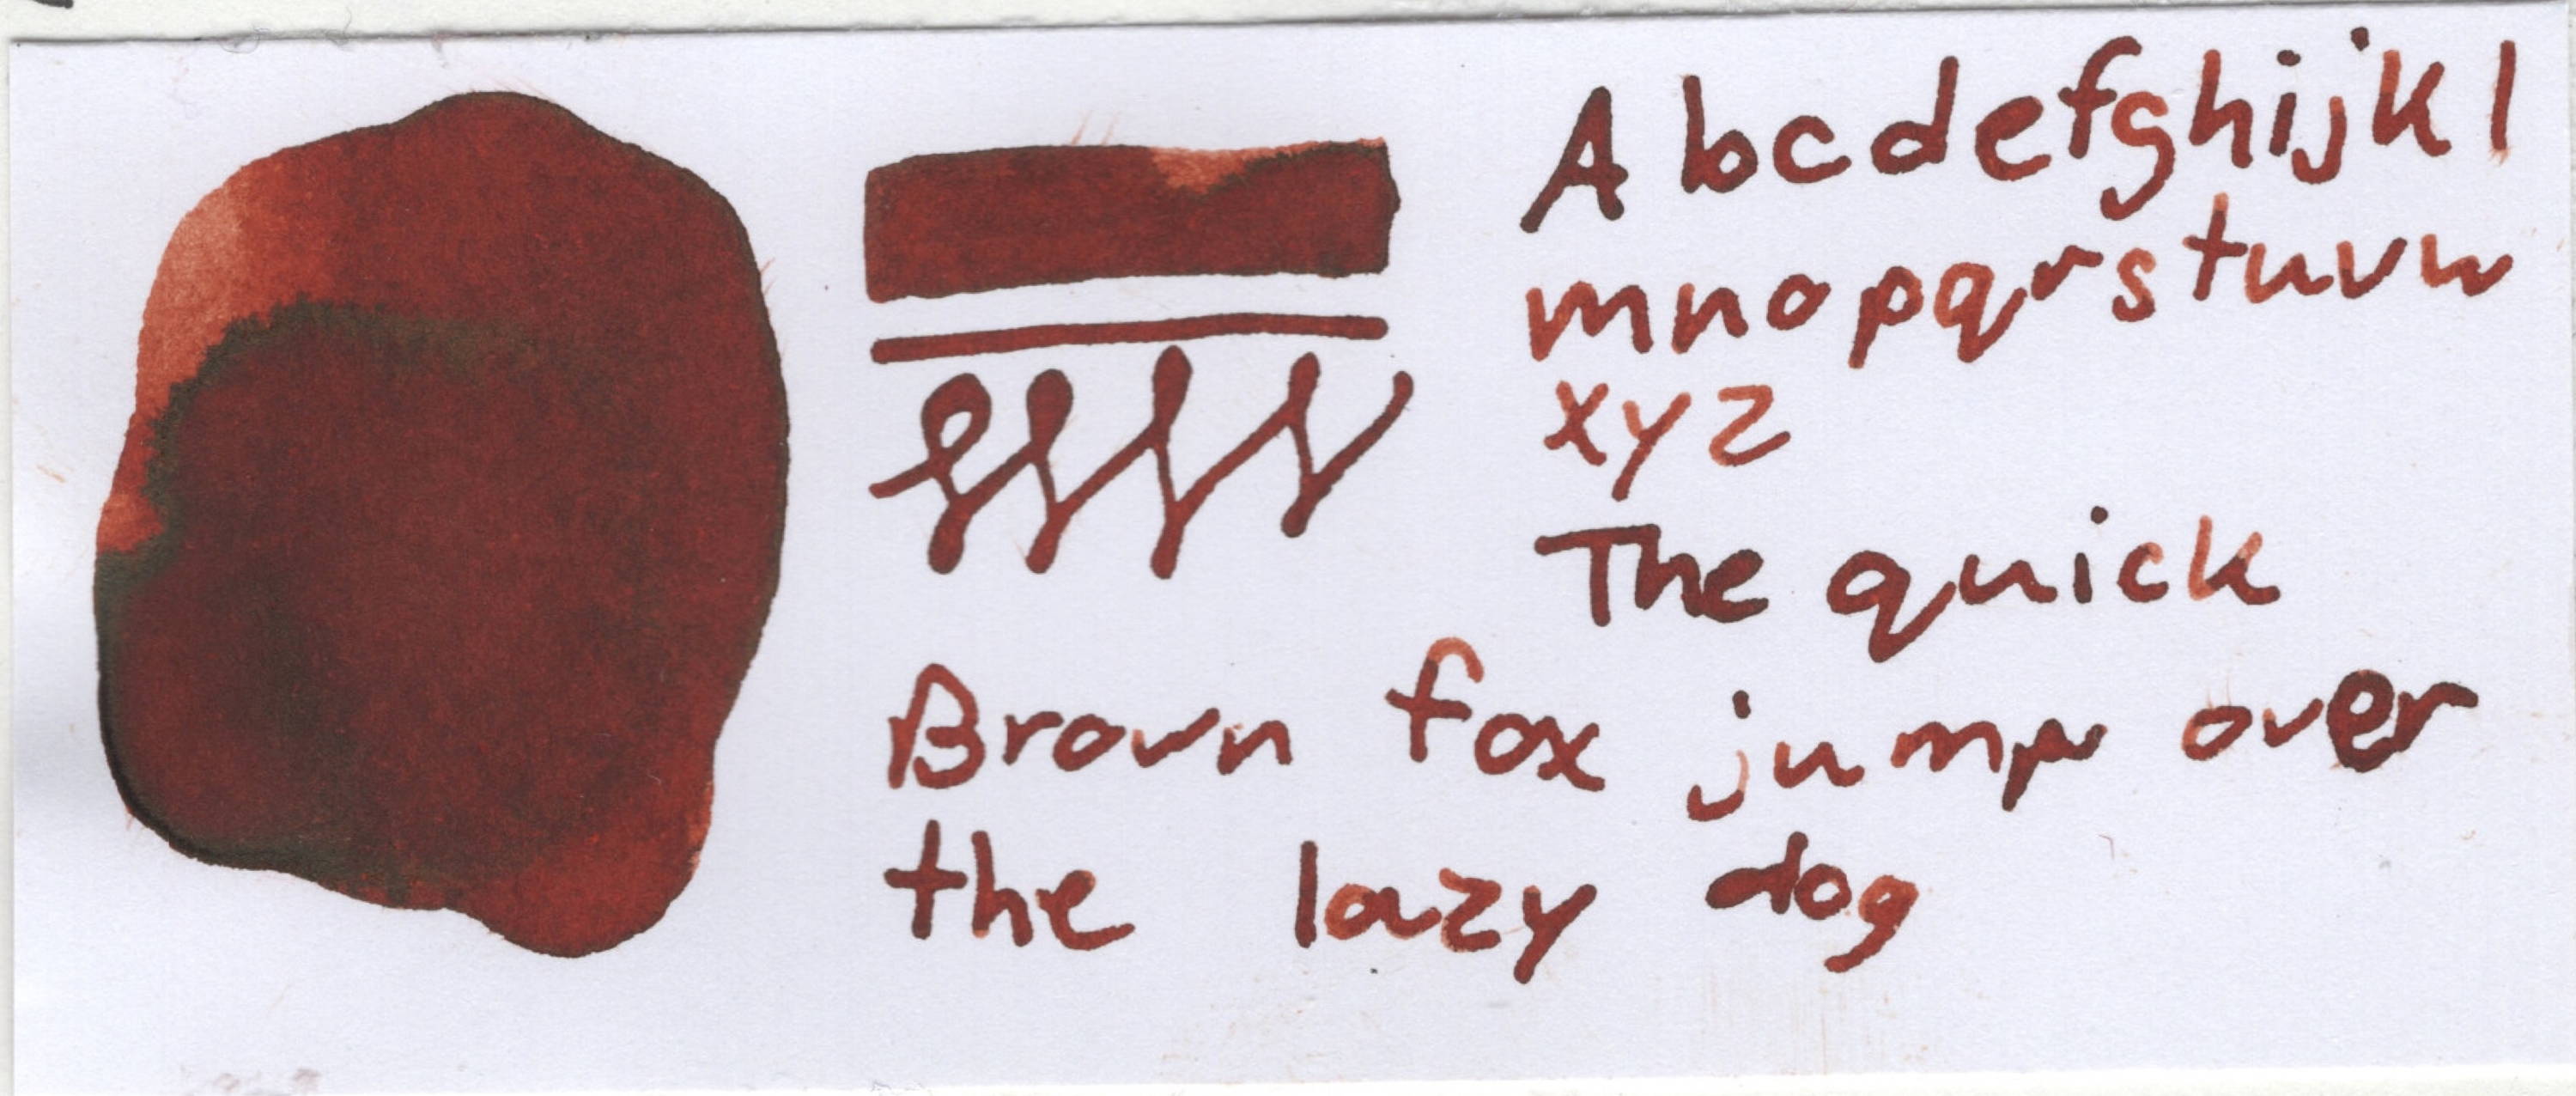 Abcdefghijkl
mnopqrstuvw
xyz
The quick
Brown fox jump over
the lazy dog